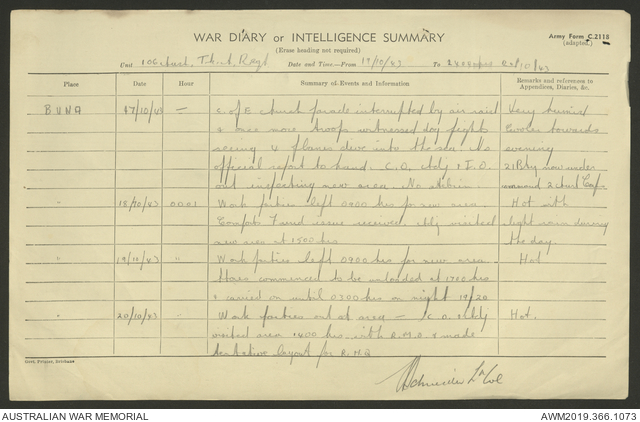 WAR DIARY or INTELLIGENCE SUMMARY
(Erase heading not required)
Army Form C.2118
(adapted.)
Unit 106 Regt
Date and Time.—From 17/10/43 To 2400 20/10/43
Place Date Hour Summary of Events and Information Remarks and references to Appendices, Diaries, &c.
BUNA 17/10/43 — C. of E. church parade interrupted by air raid Very humid
& once more troops witnessed dog fights Cooler towards
seeing 4 planes dive into the sea. No evening
official report to hand. C.O., Adj & I.O. 21 Bty now under
out inspecting new area. No command 2 Aust Corps
" 18/10/43 0001 Work parties left 0900 hrs for new area. Hot with
Comforts Fund issue received. Adj visited light rain during
new area at 1500 hrs the day
" 19/10/43 " Work parties left 0900 hrs for new area. Hot
Stores commenced to be unloaded at 1700 hrs
& carried on until 0300 hrs on night 19/20
" 20/10/43 " Work parties out at area — C.O. & Adj Hot.
visited area 1400 hrs with R.M.O. & made
tentative layout for R.H.Q
Lt Col
Govt. Printer, Brisbane
AUSTRALIAN WAR MEMORIAL
AWM2019.366.1073